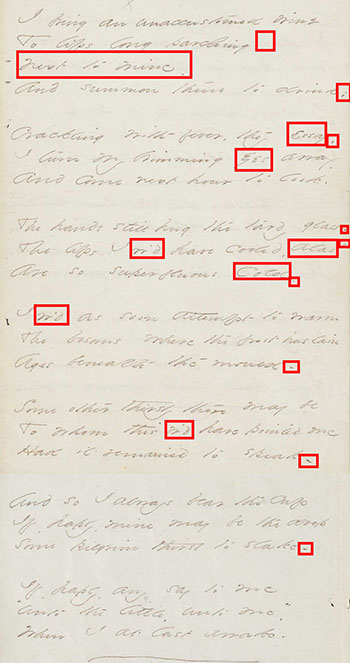 I bring an unaccustomed wine
To lips long parching
next to mine,
And summon them to drink;
Crackling with fever, they Essay,
I turn my brimming Eyes away,
And come next hour to look.
The hands still hug the tardy glass -
The lips I w'd have cooled, Alas -
Are so superfluous Cold -
I w'd as soon attempt to warm
The bosoms where the frost has lain
Ages beneath the mould -
Some other thirsty there may be
To whom this w'd have pointed me
Had it remained to speak -
And so I always bear the cup
If, haply, mine may be the drop
Some pilgrim thirst to slake -
If, haply, any say to me
"Unto the little, unto me,"
When I at last awake.